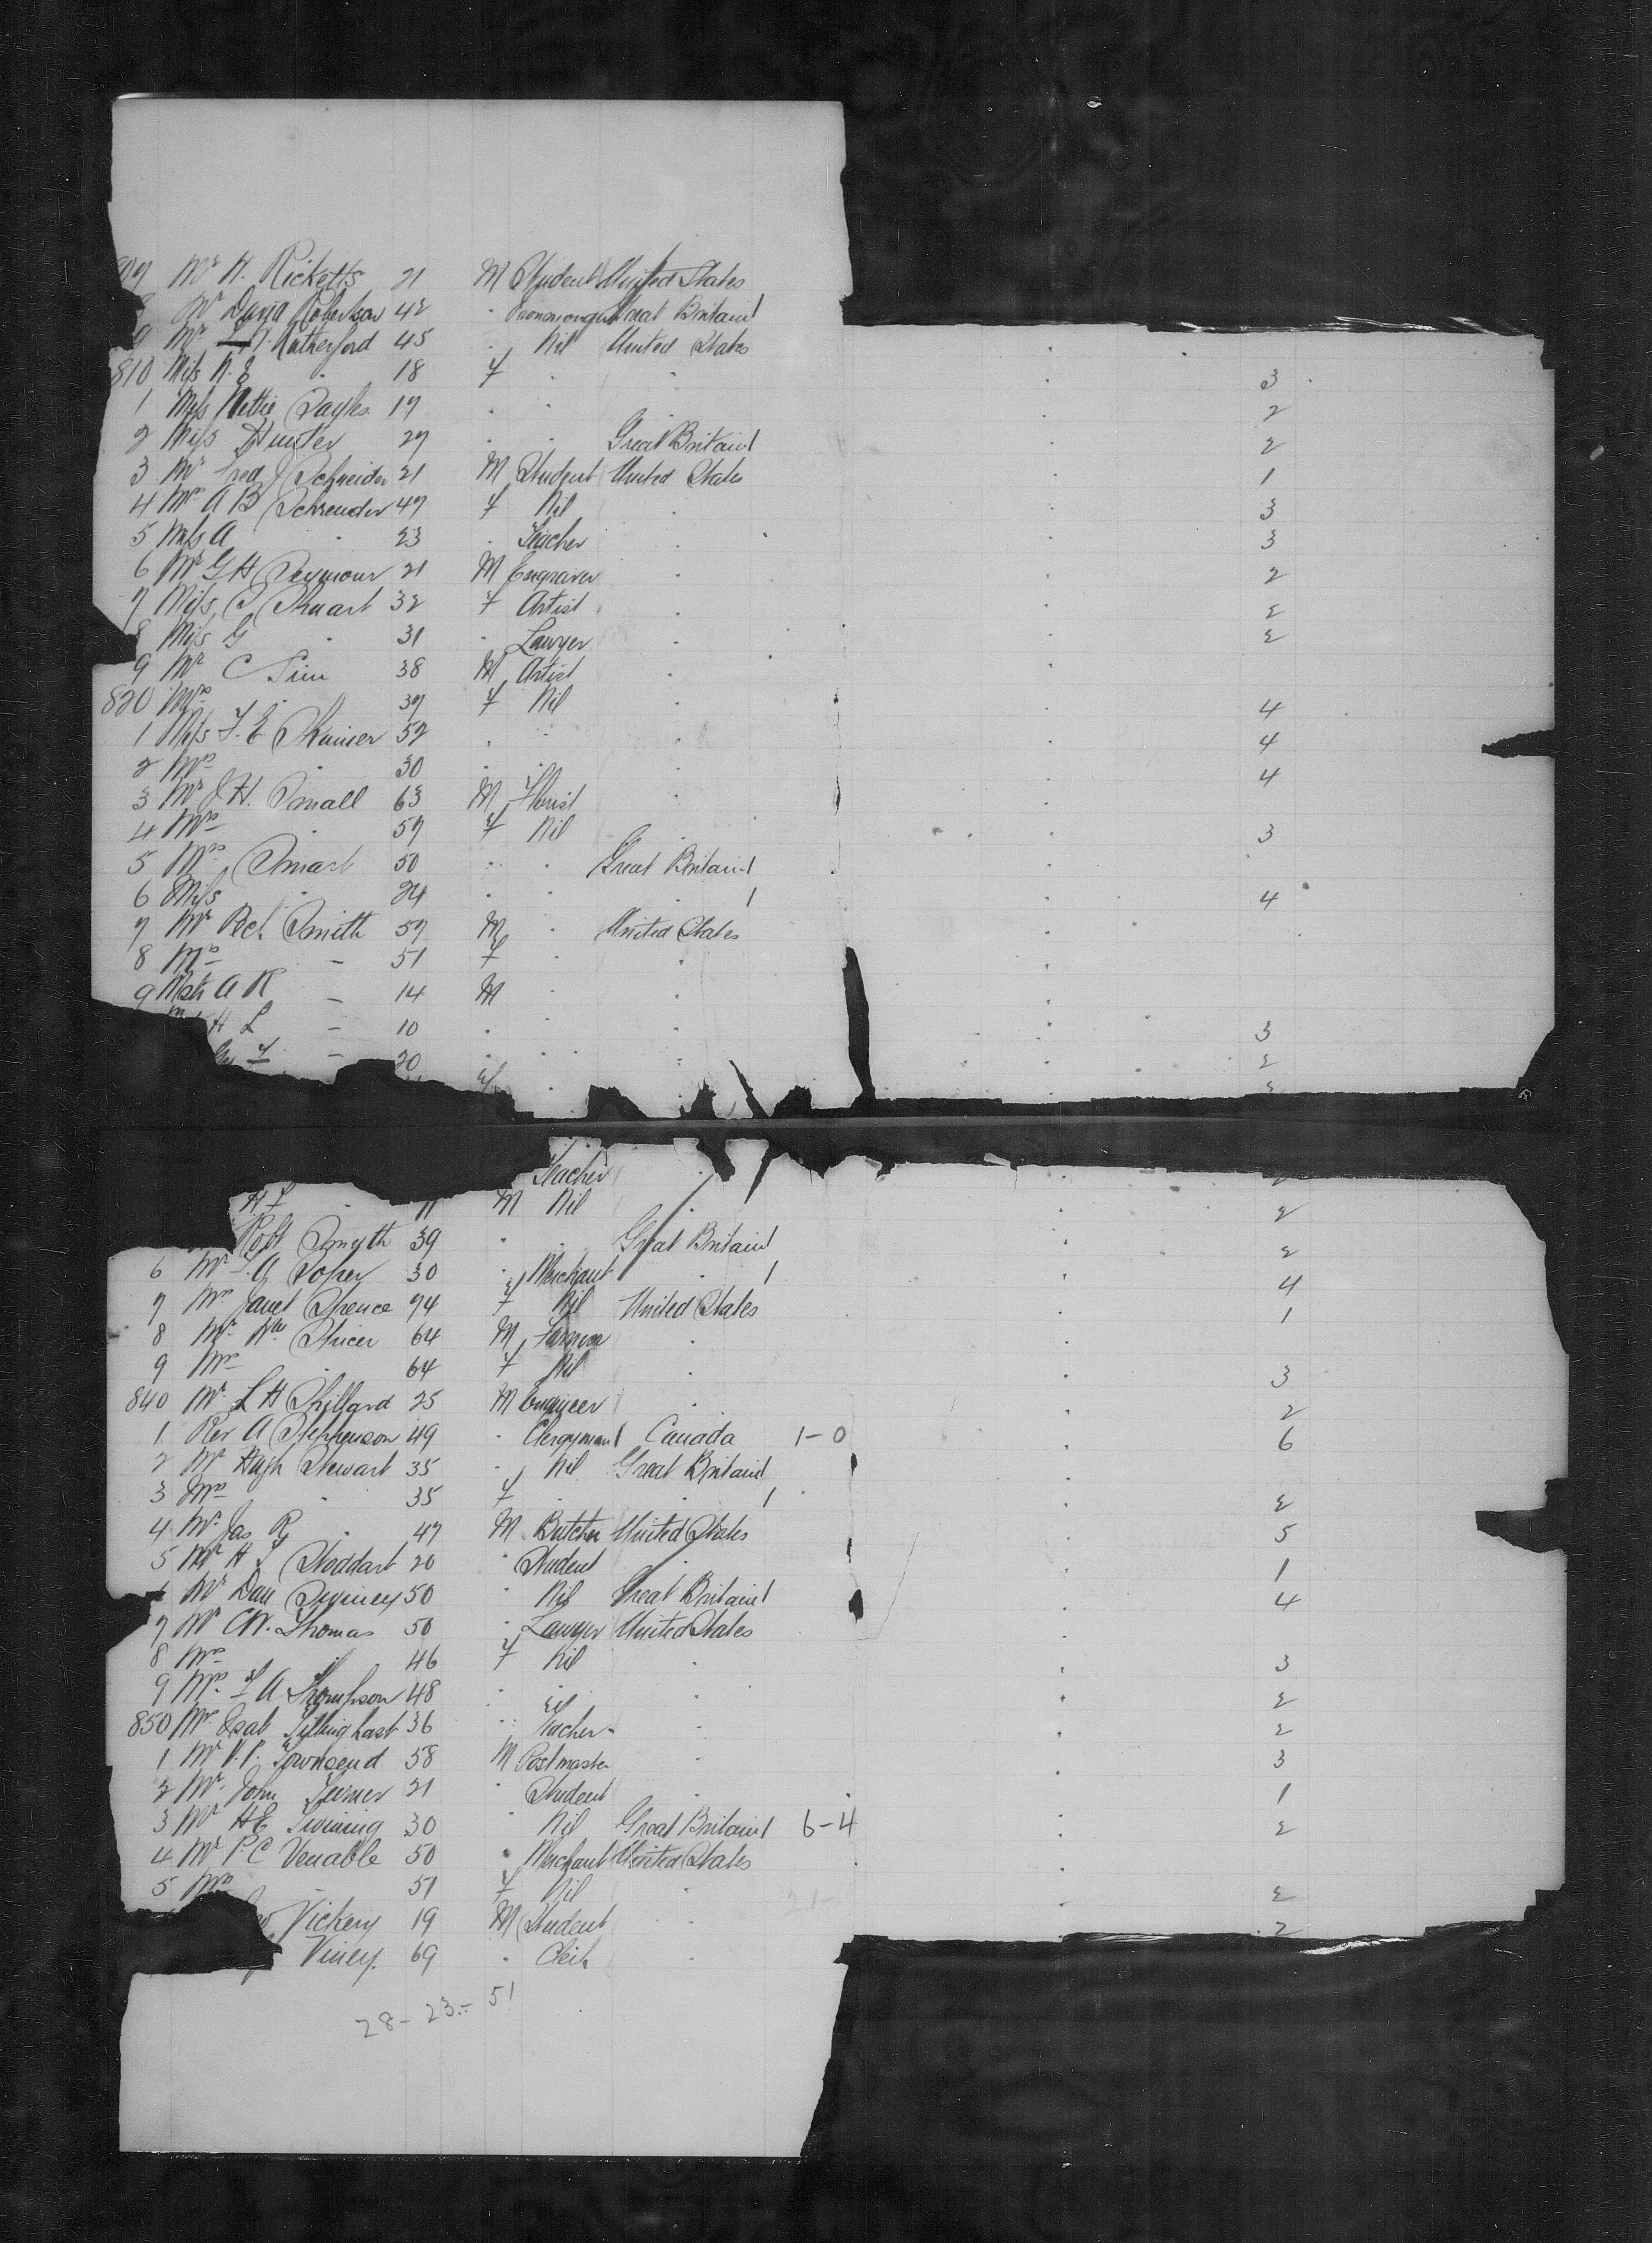 807 Mr H. Ricketts 21 M Student United States
8 Mr David Robertson 42 " Ironmonger Great Britain 1
9 Mr Rutherford 45 " Nil United States
810 Miss N. E " 18 F " " 3
1 Miss Nettie Sayles 17 " " " 2
2 Miss Hunter 27 " " Great Britain 1 2
3 Mr Fred J Schneider 21 M Student United States 1
4 Mrs A B Schreuder 47 F Nil " 3
5 Miss A " 23 " Teacher " 3
6 Mr G H Seymour 21 M Engraver " 2
7 Miss C Stuart 32 F Artist " 2
8 Miss G " 31 " Lawyer " 2
9 Mr C Sim 38 M Artist "
820 Mrs " 37 F Nil " 4
1 Miss F. E. Skinner 52 " " " 4
2 Mrs " 30 " " " 4
3 Mr J H. Small 63 M Florist "
4 Mrs " 57 F Nil " 3
5 Mrs Smart 50 " " Great Britain 1
6 Miss " 24 " " 1 4
7 Mr Smith 57 M " United States
8 Mrs - 51 F " "
9 Mstr A R - 14 M " "
H L - 10 " " 3
- 20 " " " 2
Teacher "
H L " 11 M Nil 2
Robt Smyth 39 " " Great Britain 1 2
6 Mr Soper 30 " Merchant " 1 4
7 Mrs Janet Spence 74 F Nil United States 1
8 Mr Wm Spicer 64 M Farmer "
9 Mrs " 64 F Nil " 3
840 Mr L H Spillard 25 M Engineer " 2
1 Rev A Stephenson 49 " Clergyman 1 Canada 1-0 6
2 Mr Hugh Stewart 35 " Nil Great Britain 1
3 Mrs " 35 F " " 1 2
4 Mr Jas R " 47 M Butcher United States 5
5 Mr H Stoddart 20 " Student " 1
6 Mr Dan Swiney 50 " Nil Great Britain 1 4
7 Mr C W. Thomas 50 " Lawyer United States
8 Mrs " 46 F Nil " 3
9 Mrs A Thompson 48 " Nil " 2
850 Isab Tillinghast 36 " Teacher " 2
1 Mr Townsend 58 M Postmaster " 3
2 Mr John Turner 21 " Student " 1
3 Mr H E Twining 30 " Nil Great Britain 1 6-4 2
4 Mr P. C Venable 50 " Merchant United States
5 Mrs - 51 F Nil " 2
Vickery 19 M Student " 2
Viney. 69 " Clerk "
28-23-51